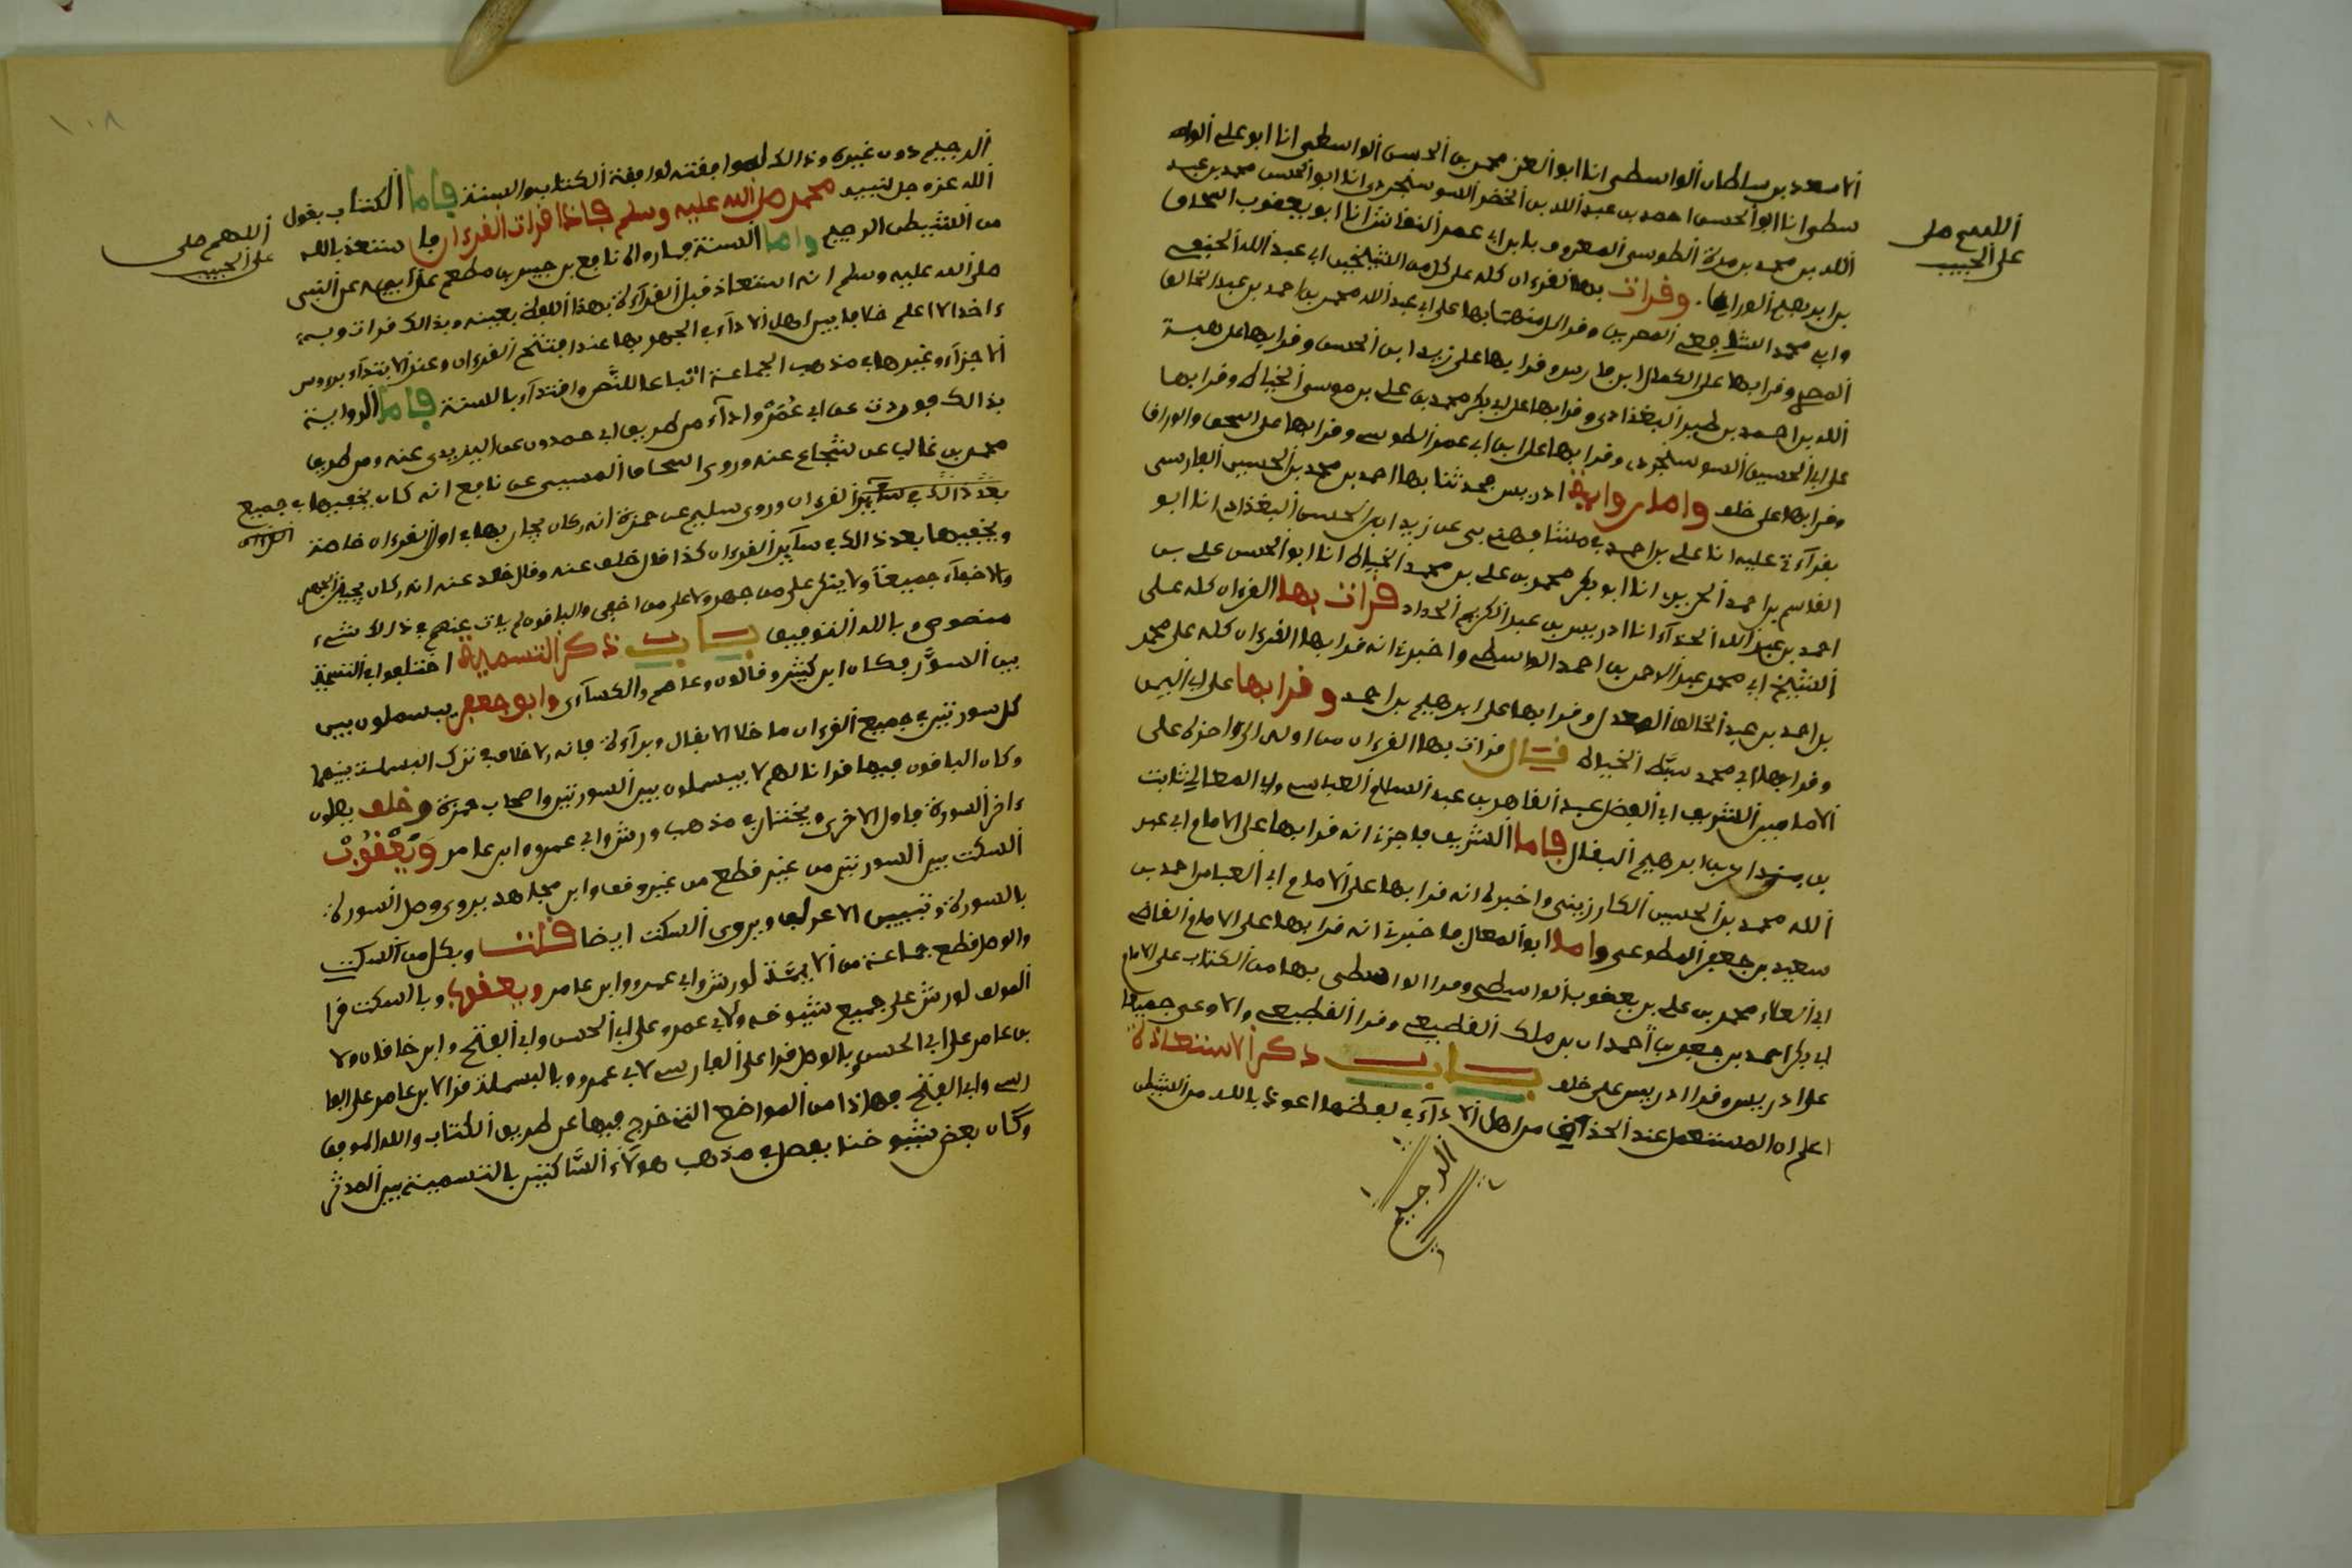 الاسعد بن سلطان الواسطى انا ابو العز محمد بن الحسن الواسطى انا ابو على الواه
سطى انا ابو الحسن احمد بن عبد الله بن الخضر السوسنجردى انا ابو الحسن محمد بن عبد
الله بن محمد بن مرة الطوسى المعروف بابن ابى عمر النقاش انا ابو يعقوب اسحاق
بن ابرهيم الوراق. وقرات بها القرءان كله على كل من الشيخين ابى عبد الله الحنفى
وابى محمد الشافعى المصريين وقرا كل منهما بها على ابى عبد الله محمد بن احمد بن عبد الخالق
المصرى وقرا بها على الكمال ابن فارس وقرا بها على زيد ابن الحسن وقرا بها على هبة
الله بن احمد بن طبر البغدادى وقرا بها على ابى بكر محمد بن على بن موسى الخياط وقرا بها
على ابى الحسين السوسنجردى وقرا بها على ابن ابى عمر الطوسى وقرا بها على اسحق الوراق
وقرا بها على خلف واما رواية ادريس فحدثنا بها احمد بن محمد بن الحسين الفارسى
بقراءتى عليه انا على بن احمد فى ما شافهنى به عن زيد ابن الحسن البغدادى انا ابو
القاسم بن احمد الحريرى انا ابو بكر محمد بن على بن محمد الخياط انا ابو الحسن على بن
احمد بن عبد الله الحذاء انا ادريس بن عبد الكريم الحداد قرات بها القرءان كله على
الشيخ ابى محمد عبد الرحمن بن احمد الواسطى واخبرنى انه قرا بها القرءان كله على محمد
بن احمد بن عبد الخالق المعدل وقرا بها على ابرهيم بن احمد وقرا بها على ابى اليمن
وقرا بها على ابى محمد سبط الخياط قال قرات بها القرءان من اوله الى ءاخره على
الامامين الشريف ابى الفضل عبد القاهر بن عبد السلام العباسى وابى المعالى ثابت
بن بندار بن ابرهيم البقال فاما الشريف فاخبرنى انه قرا بها على الامام ابى عبد
الله محمد بن الحسين الكارزينى واخبره انه قرا بها على الامام ابى العباس احمد بن
سعيد بن جعفر المطوعى واما ابو المعالى فاخبرنى انه قرا بها على الامام القاضى
ابى العلاء محمد بن على بن يعقوب الواسطى وقرا الواسطى بها من الكتاب على الامام
ابى بكر احمد بن جعفر بن احمدان بن ملك القطيعى وقرا القطيعى والمطوعى جميعا
على ادريس وقرا ادريس على خلف باب ذكر الاستعاذة
اعلم ان المستعمل عند الحذاق من اهل الاداء فى لفظها اعوذ بالله من الشيطن
الرجيم
اللهم صل
على الحبيب
١٠٨
الرجيم دون غيره وذالك لموافقته لموافقة الكتاب والسنة فاما الكتاب بقول
الله عز وجل لنبيه محمد صلى الله عليه وسلم فاذا قرات القرءان فاستعذ بالله
من الشيطن الرجيم واما السنة فما رواه نافع بن جبير بن مطعم عن ابيه عن النبى
صلى الله عليه وسلم انه استعاذ قبل القراءة بهذا اللفظ بعينه وبذالك قرات وبه
ءاخذ ولا اعلم خلافا بين اهل الاداء فى الجهر بها عند افتتح القرءان وعند الابتداء برءوس
الاجزاء وغيرها فى مذهب الجماعة اتباعا للنص واقتداء بالسنة فاما الرواية
بذالك فوردت عن ابى عمر واداء من طريق ابى حمدون عن اليزيدى عنه ومن طريق
محمد بن غالب عن شجاع عنه وروى اسحاق المسيبى عن نافع انه كان يخفيها فى جميع
القرءان وروى سليم عن حمزة انه كان يجهر بها فى اول القرءان خاصة
ويخفيها بعد ذالك فى سائر القرءان كذا قال خلف عنه وقال خلاد عنه انه كان يجيز الجهر
والاخفاء جميعا ولا ينكر على من جهر ولا على من اخفى والباقون لم يات عنهم فى ذالك شىء
منصوص وبالله التوفيق باب ذكر التسمية اختلفوا فى التسمية
بين السور فكان ابن كثير وقالون وعاصم والكسائى وابو جعفر يبسملون بين
كل سورتين فى جميع القرءان ما خلا الانفال وبراءة فانه لا خلاف فى ترك البسملة بينهما
وكان الباقون فيها قرانا لهم لا يبسملون بين السورتين واصحاب حمزة وخلف يصلون
ءاخر السورة باول الاخرى ويختار فى مذهب ورش وابى عمرو وابن عامر ويعقوب
السكت بين السورتين من غير قطع من غير وقف وابن مجاهد يروى وصل السورة
بالسورة وتبيين الاعراب ويروى السكت ايضا قلت وبكل من السكت
والوصل قطع جماعة من الائمة لورش وابى عمرو وابن عامر ويعقوب وبالسكت قرا
المؤلف لورش على جميع شيوخه ولابى عمرو على ابى الحسن وابى الفتح وابن خاقان ولا
بن عامر على ابى الحسن وبالوصل قرا على الفارسى لابى عمرو وبالبسملة قرا لابن عامر على الفا
رسى وابى الفتح فهاذا من المواضع التى خرج فيها عن طريق الكتاب والله الموفق
وكان بعض شيوخنا يفصل فى مذهب هؤلاء السّاكتين بالتسمية بين المدثر
اللهم صلى
على الحبيب